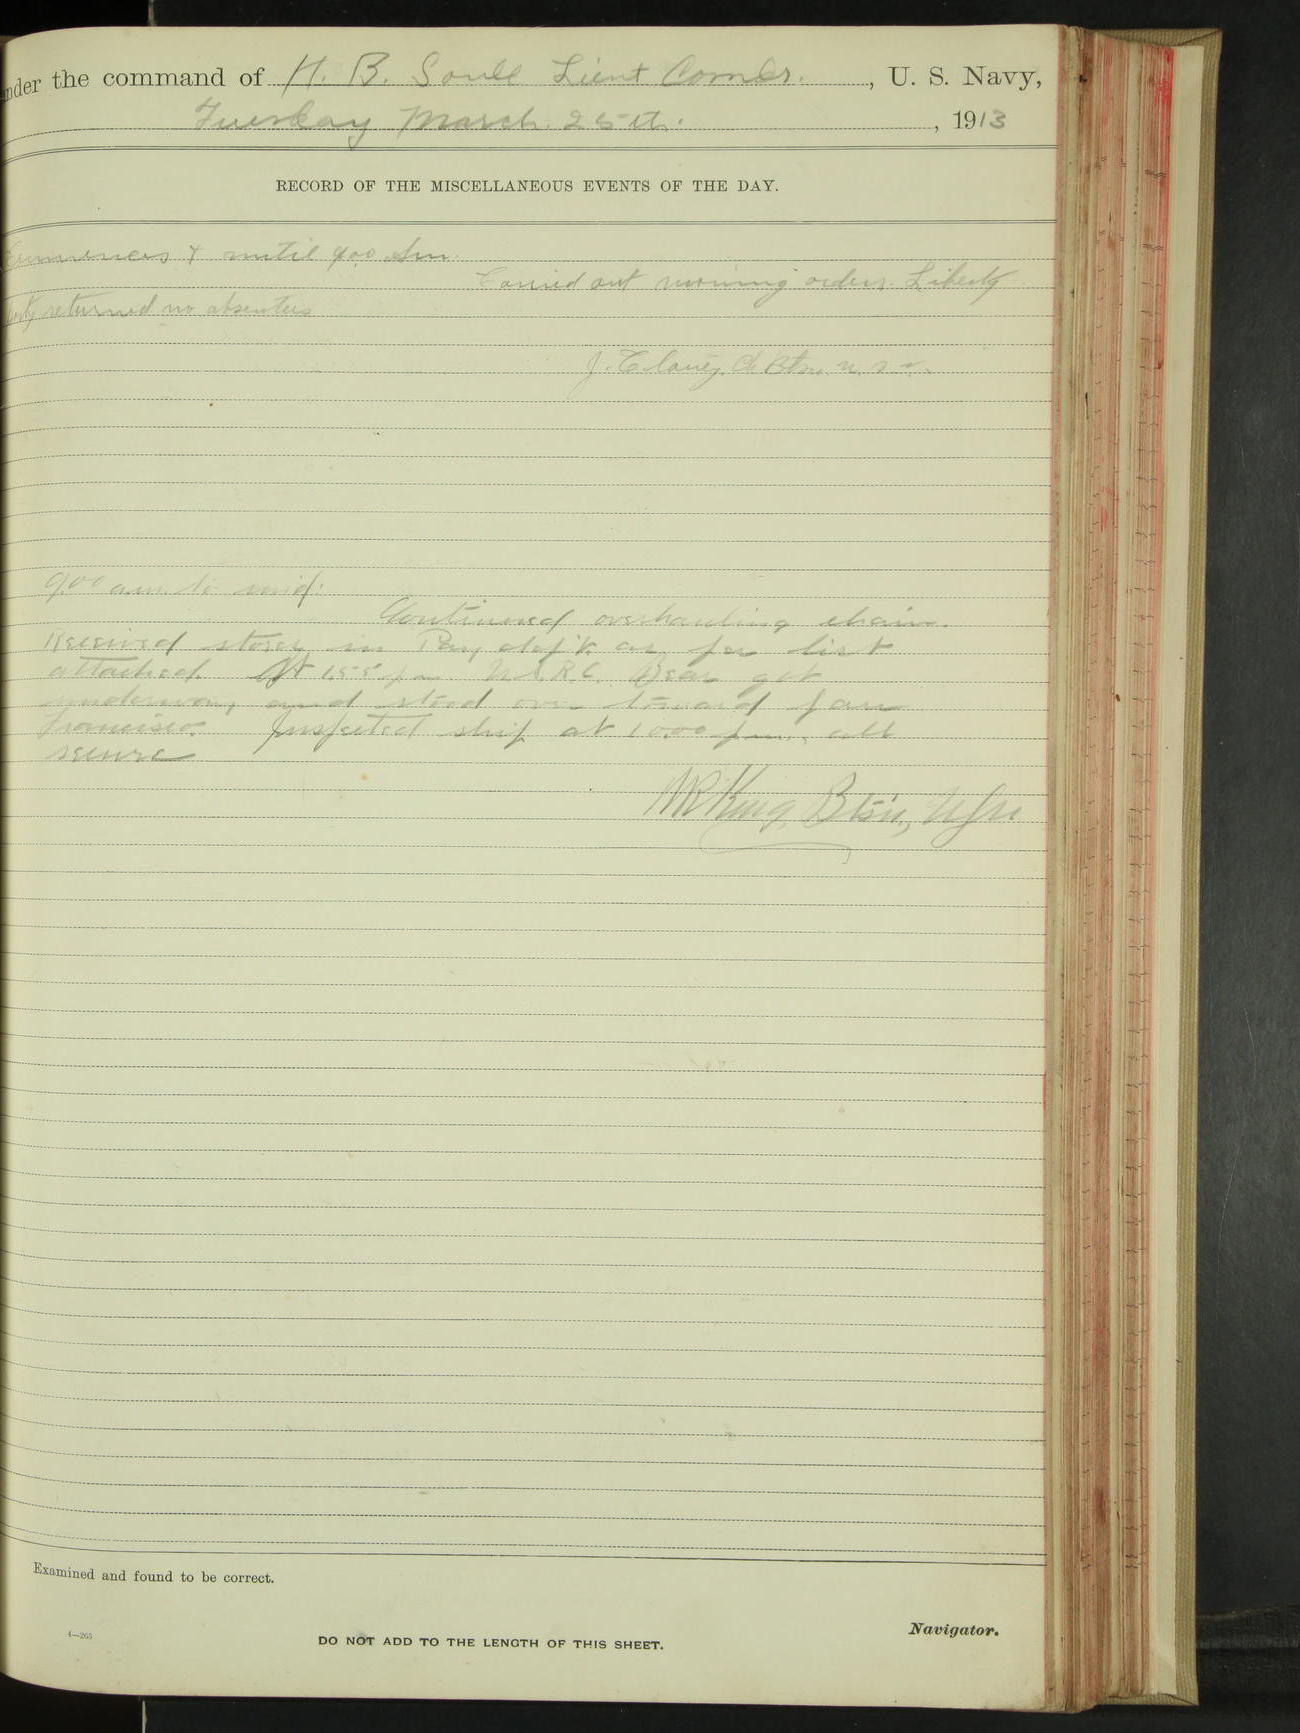 nder the command of H. B. Soule Lieut Comdr. , U. S. Navy,
Tuesday March 25th. , 1913
RECORD OF THE MISCELLANEOUS EVENTS OF THE DAY.
Commences & until 9.00 Am.
Carried out morning orders. Liberty
party returned no absentees
J. Clancy, Ch Btsn. U.S.N.
9.00 a.m. to mid:
Continued overhauling chain.
Received stores in Pay dep't. as per list
attached. At 1.55 p.m. U.S.R.C. Bear got
underway and stood over toward San
Francisco. Inspected ship at 10.00 p.m., all
secure
King, Bts'n, USN
Examined and found to be correct.
4—265
DO NOT ADD TO THE LENGTH OF THIS SHEET.
Navigator.